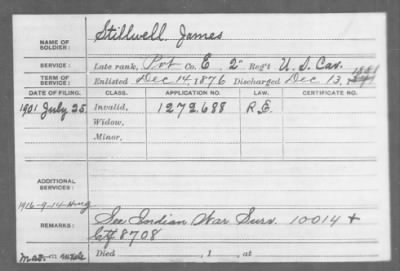 NAME OF SOLDIER: Stillwell, James
SERVICE: Late rank, Pvt Co. E, 2" Reg't U. S. Cav.
TERM OF SERVICE: Enlisted Dec 14, 1876 Discharged Dec 13, 1881
DATE OF FILING. CLASS. APPLICATION NO. LAW. CERTIFICATE NO.
1901 July 25 Invalid, 1272.688 R.E.
Widow,
Minor,
ADDITIONAL SERVICES:
1916-9-14
REMARKS: See Indian War Surv. 10014 +
Ctf 8708
Died , 1 , at